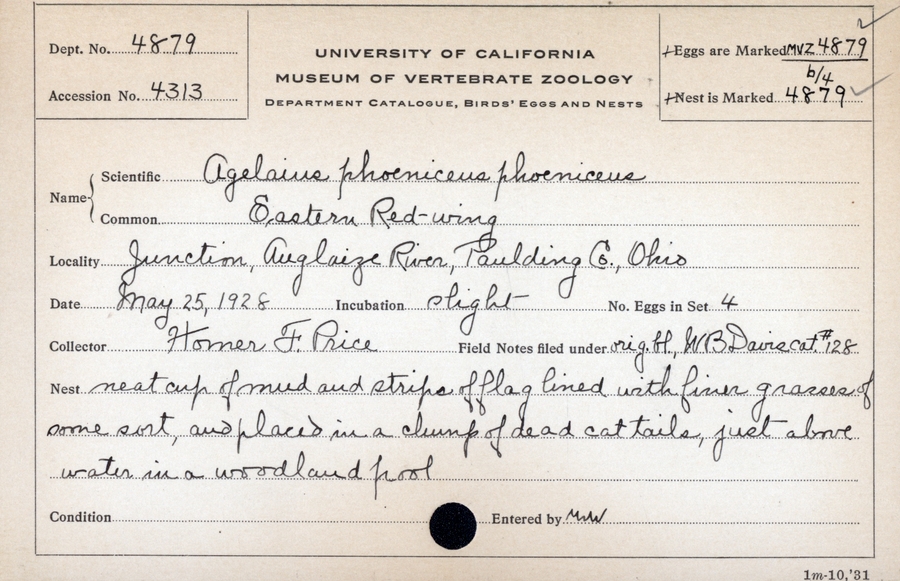 Dept. No. 4879
Accession No. 4313
UNIVERSITY OF CALIFORNIA
MUSEUM OF VERTEBRATE ZOOLOGY
DEPARTMENT CATALOGUE, BIRDS' EGGS AND NESTS
Eggs are Marked MVZ 4879
b/4
Nest is Marked 4879
Name
Scientific Agelaius phoeniceus phoeniceus
Common Eastern Red-wing
Locality Junction, Auglaize River, Paulding Co., Ohio
Date May 25, 1928 Incubation slight No. Eggs in Set 4
Collector Homer F. Price Field Notes filed under orig. bl., WB Davis cat # 128
Nest neat cup of mud and strips of flag lined with finer grasses of
some sort, and placed in a clump of dead cat tails, just above
water in a woodland pool
Condition Entered by
1m-10,'31